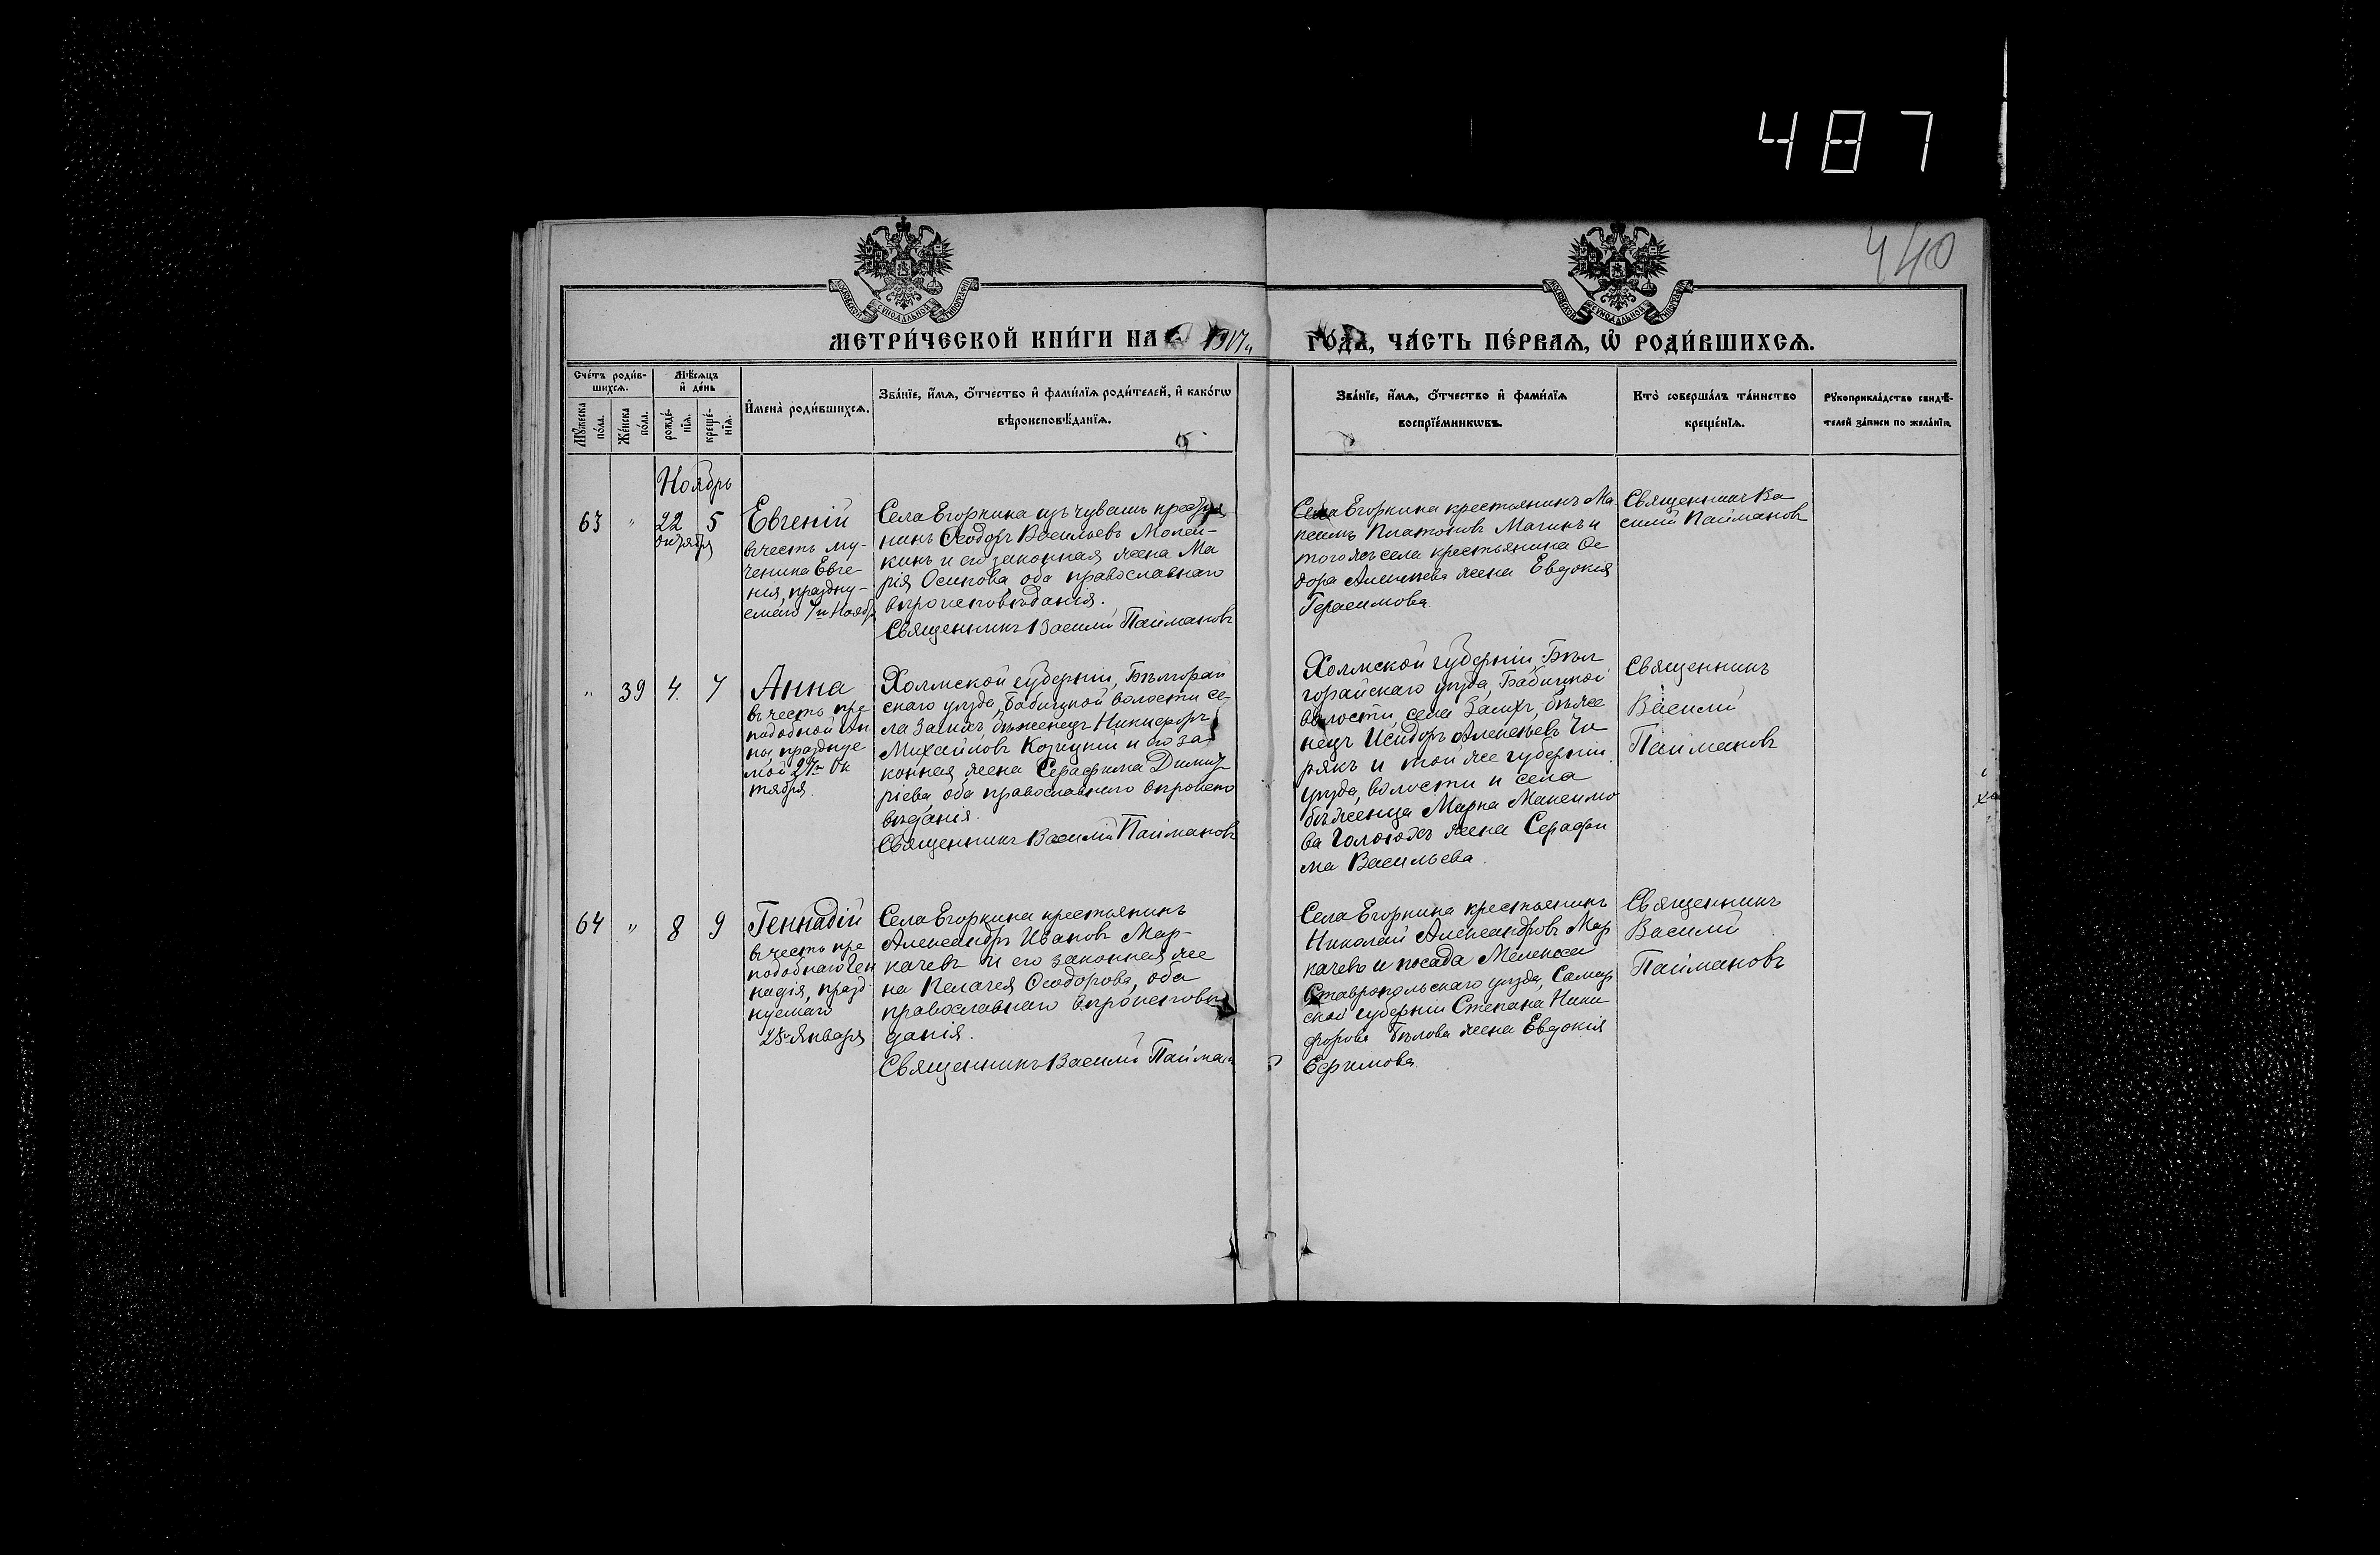 487
440
МЕТРИ́ЧЕСКОЙ КНИ́ГИ НА 1917 ГО́ДА, ЧА́СТЬ ПЕ́РВАѦ, Ѡ҆ РОДИ́ВШИХСѦ.
Сче́тъ роди́в-
шихсѧ.
Мꙋ́жеска
по́ла.
Же́нска
по́ла.
Мѣ́сѧцъ
и҆ де́нь
рожде́-
нїѧ.
креще́-
нїѧ.
И҆мена̀ роди́вшихсѧ.
Зва́нїе, и҆́мѧ, о҆́тчество и҆ фами́лїѧ роди́телей, и҆ како́гѡ
вѣроисповѣ́данїѧ.
Зва́нїе, и҆́мѧ, о҆́тчество и҆ фами́лїѧ
воспрїе́мникѡвъ.
Кто̀ соверша́лъ та́инство
креще́нїѧ.
Рꙋкоприкла́дство свидѣ́-
телей за́писи по жела́нїю.
Ноябрь
63 " 22 5
октября
Евгеній
въ честь му-
ченика Евге-
нія, праздну-
емаго 7го Ноября
Села Егоркина изъ чувашъ крестья
нинъ Ѳеодоръ Васильевъ Молей-
кинъ и его законная жена Ма
рія Осипова, оба православнаго
вѣроисповѣданія.
Священникъ Василій Паймановъ
Села Егоркина крестьянинъ Ма
ксимъ Платоновъ Магинъ и
того жъ села крестьянина Ѳе
дора Алексѣева жена Евдокія
Герасимова.
Священникъ Ва
силій Паймановъ
" 39 4. 7
Анна
въ честь пре
подобной Ан
ны, праздуе
мой 29го Ок
тября.
Холмской губерніи, Бѣлгорай
скаго уѣзда, Бабицкой волости се-
ла Замхъ, бѣженецъ Никифоръ
Михайловъ Козицкій и его за
конная жена Серафима Димит
ріева, оба православнаго вѣроиспо
вѣданія.
Священникъ Василій Паймановъ
Холмской губерніи, Бѣл
горайскаго уѣзда, Бабицкой
волости, села Замхъ, бѣже
нецъ Исидоръ Алексѣевъ
рякъ и той же губерніи.
уѣзда, волости и села
бѣженца Марка Максимо
ва жена Серафи
ма Васильева.
Священникъ
Василій
Паймановъ
64 " 8 9
Геннадій
въ честь пре
подобнаго Ген
надія, празд
нуемаго
23 Января
Села Егоркина крестьянинъ
Александръ Ивановъ Мар-
качевъ и его законная же
на Пелагея Ѳеодорова, оба
православнаго вѣроисповѣ
данія.
Священникъ Василій Пайманов
Села Егоркина крестьянинъ
Николай Александровъ Мар
качевъ и посада Мелекеса
Ставропольскаго уѣзда, Самар
ской губерніи Степана Ники
форова Бѣлова жена Евдокія
Ефимова.
Священникъ
Василій
Паймановъ